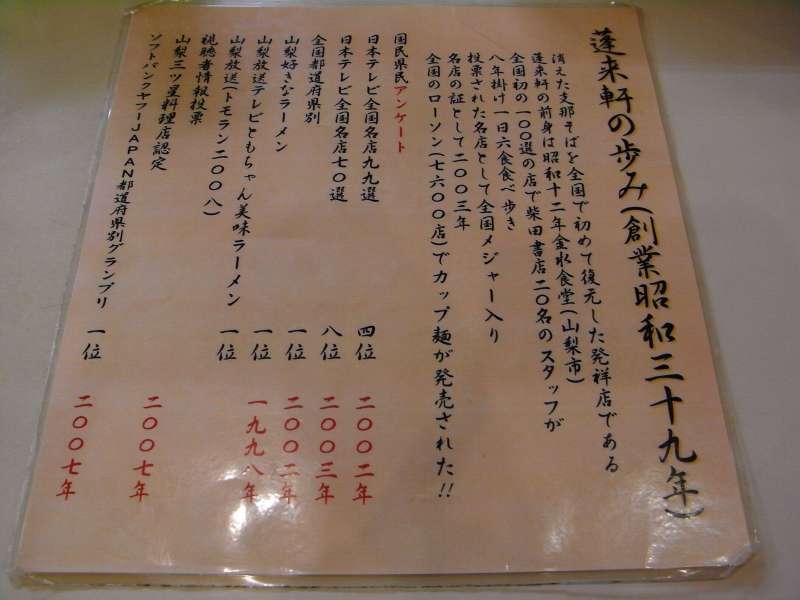 蓬来軒の歩み(創業昭和三十九年)
消えた支那そばを全国で初めて復元した発祥店である
蓬来軒の前身は昭和十二年金水食堂(山梨市)
全国初の一〇〇選の店で柴田書店二〇名のスタッフが
八年掛け一日六食食べ歩き
投票された名店として全国メジャー入り
名店の証として二〇〇三年
全国のローソン(七六〇〇店)でカップ麺が発売された!!
国民県民アンケート
日本テレビ全国名店九九選 四位 二〇〇二年
日本テレビ全国名店七〇選 八位 二〇〇三年
全国都道府県別
山梨好きなラーメン 一位 二〇〇二年
山梨放送テレビともちゃん美味ラーメン 一位 一九九八年
山梨放送(トモラン二〇〇八) 一位
視聴者情報投票
山梨三ツ星料理店認定 二〇〇七年
ソフトバンクヤフーJAPAN都道府県別グランプリ 一位 二〇〇七年